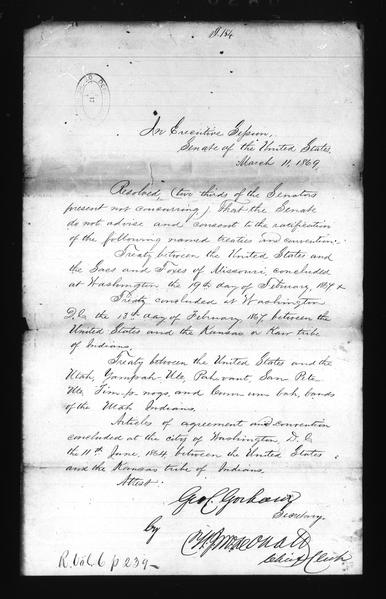 In Executive Session,
Senate of the United States,
March 11, 1869,
Resolved, (two thirds of the Senators
present not concurring,) That the Senate
do not advise and consent to the ratification
of the following named treaties and convention:
Treaty between the United States and
the Sacs and Foxes of Missouri, concluded
at Washington the 19th day of February,
Treaty concluded at Washington
D.C. the 13th day of February, 1867 between the
United States and the Kansas or Kaw tribe
of Indians.
Treaty between the United States and the
Utah, Yampah-Ute, Pah-vant, San Pete
Ute, Tim-p-nogs, and Cum-um-bah, bands
of the Utah Indians.
Articles of agreement and convention
concluded at the city of Washington, D.C.
the 11th June, 1864 between the United States
and the Kansas tribe of Indians.
Attest:
Geo. C. Gorham
Secretary.
by
McDonald
Chief Clerk
R. Vol. 6 p 239